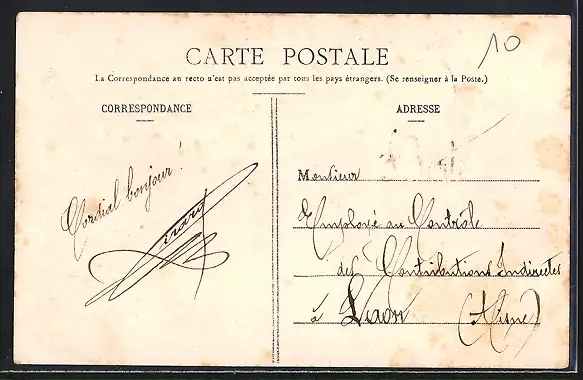 10
CARTE POSTALE
La Correspondance au recto n'est pas acceptée par tous les pays étrangers. (Se renseigner à la Poste.)
CORRESPONDANCE
Cordial bonjour !
ADRESSE
Monsieur
Employé au Contrôle
des Contributions Indirectes
à Laon (Aisne)